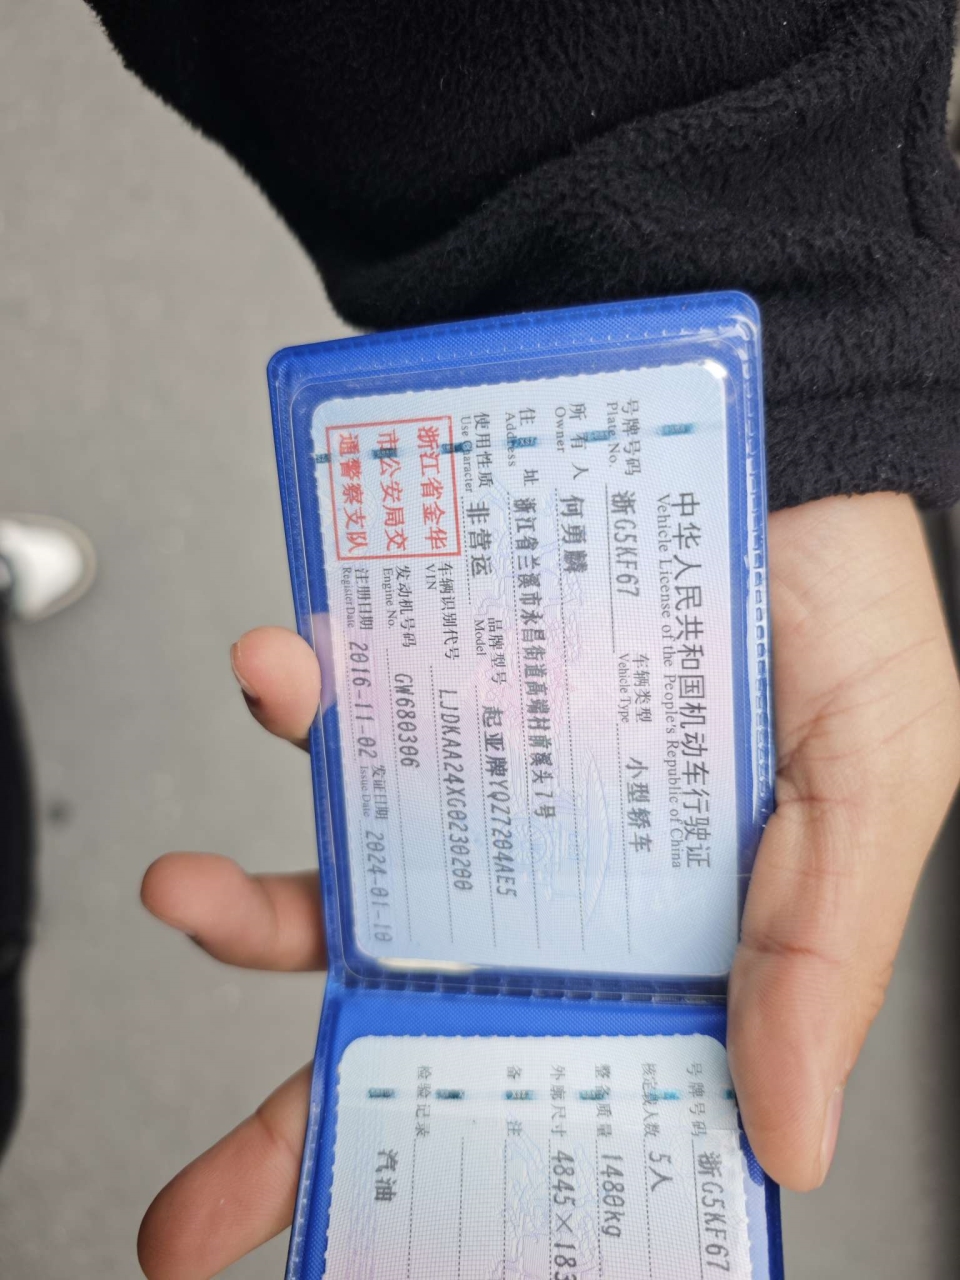 中华人民共和国机动车行驶证
Vehicle License of the People's Republic of China
号牌号码 浙G5KF67 车辆类型 小型轿车
Plate No. Vehicle Type
所有人 何勇麟
Owner
住址 浙江省兰溪市永昌街道高端村前溪头7号
Address
使用性质 非营运 品牌型号 起亚牌YQZ7204AE5
Use Character Model
浙江省金华
市公安局交
通警察支队
车辆识别代号 LJDKAA24XG0230200
VIN
发动机号码 GW680306
Engine No.
注册日期 2016-11-02 发证日期 2024-01-18
Register Date Issue Date
号牌号码 浙G5KF67
核定载人数 5人
整备质量 1480kg
外廓尺寸 4845×183
备注
检验记录
汽油